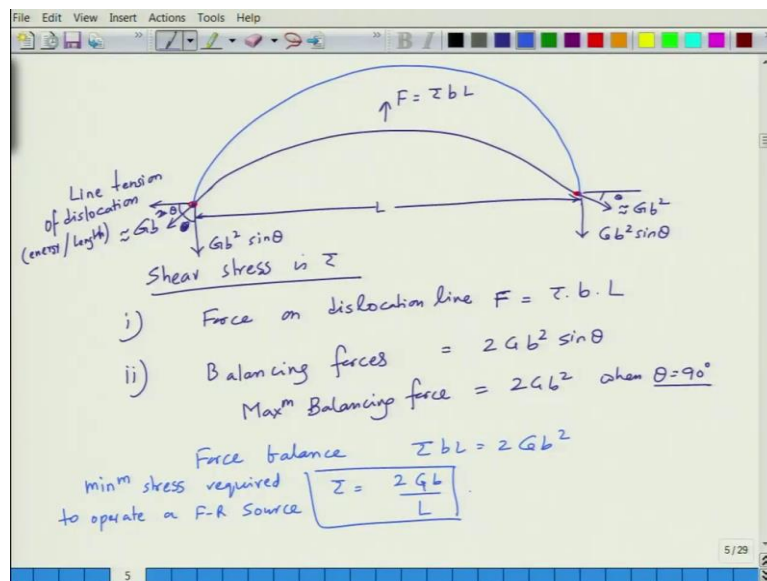 File Edit View Insert Actions Tools Help
B I
F = τ b L
Line tension
of dislocation
(energy/length) ≈ Gb² θ
L
θ
≈ Gb²
Gb² sinθ
Gb² sinθ
Shear stress is τ
i) Force on dislocation line F = τ. b. L
ii) Balancing forces = 2Gb² sinθ
Maxᵐ Balancing force = 2Gb² when θ=90°
Force balance τbL = 2Gb²
minᵐ stress required τ = 2Gb/L
to operate a F-R Source
5/29
5